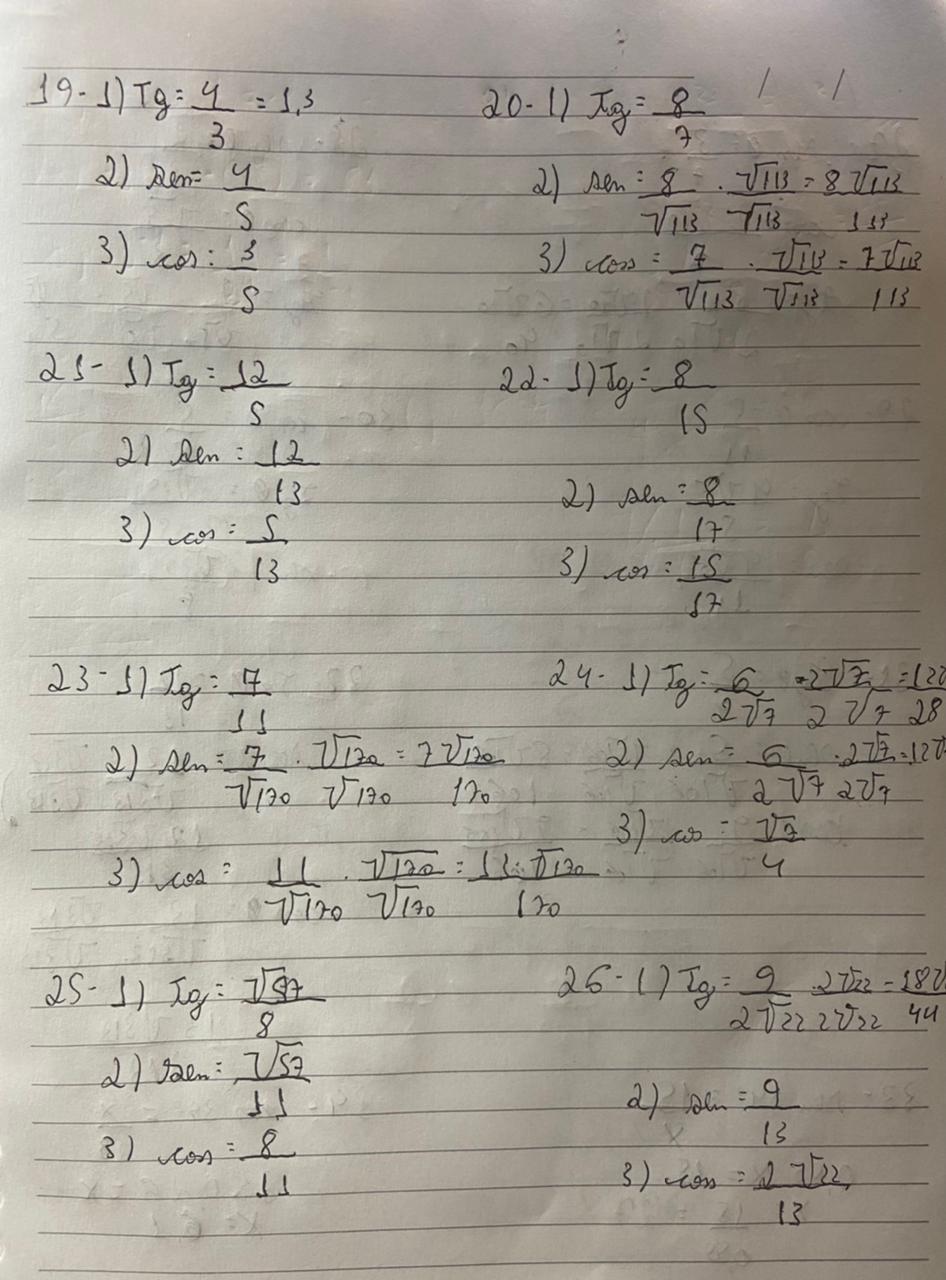 19- 1) Tg= 4/3 = 1,3
2) sen= 4/5
3) cos: 3/5
20- 1) Tg= 8/7
2) sen = 8/√113 · √113/√113 = 8√113/113
3) cos = 7/√113 · √113/√113 = 7√113/113
21- 1) Tg= 12/5
2) sen = 12/13
3) cos = 5/13
22- 1) Tg= 8/15
2) sen = 8/17
3) cos = 15/17
23- 1) Tg= 7/11
2) sen= 7/√170 · √170/√170 = 7√170/170
3) cos = 11/√170 · √170/√170 = 11·√170/170
24- 1) Tg= 6/2√7 · 2√7/2√7 = 12/28
2) sen= 6/2√7 · 2√7/2√7 = 12√
3) cos = √7/4
25- 1) Tg= √57/8
2) sen= √57/11
3) cos = 8/11
26- 1) Tg= 9/2√22 · 2√22/2√22 = 18√/44
2) sen = 9/13
3) cos = 2√22/13